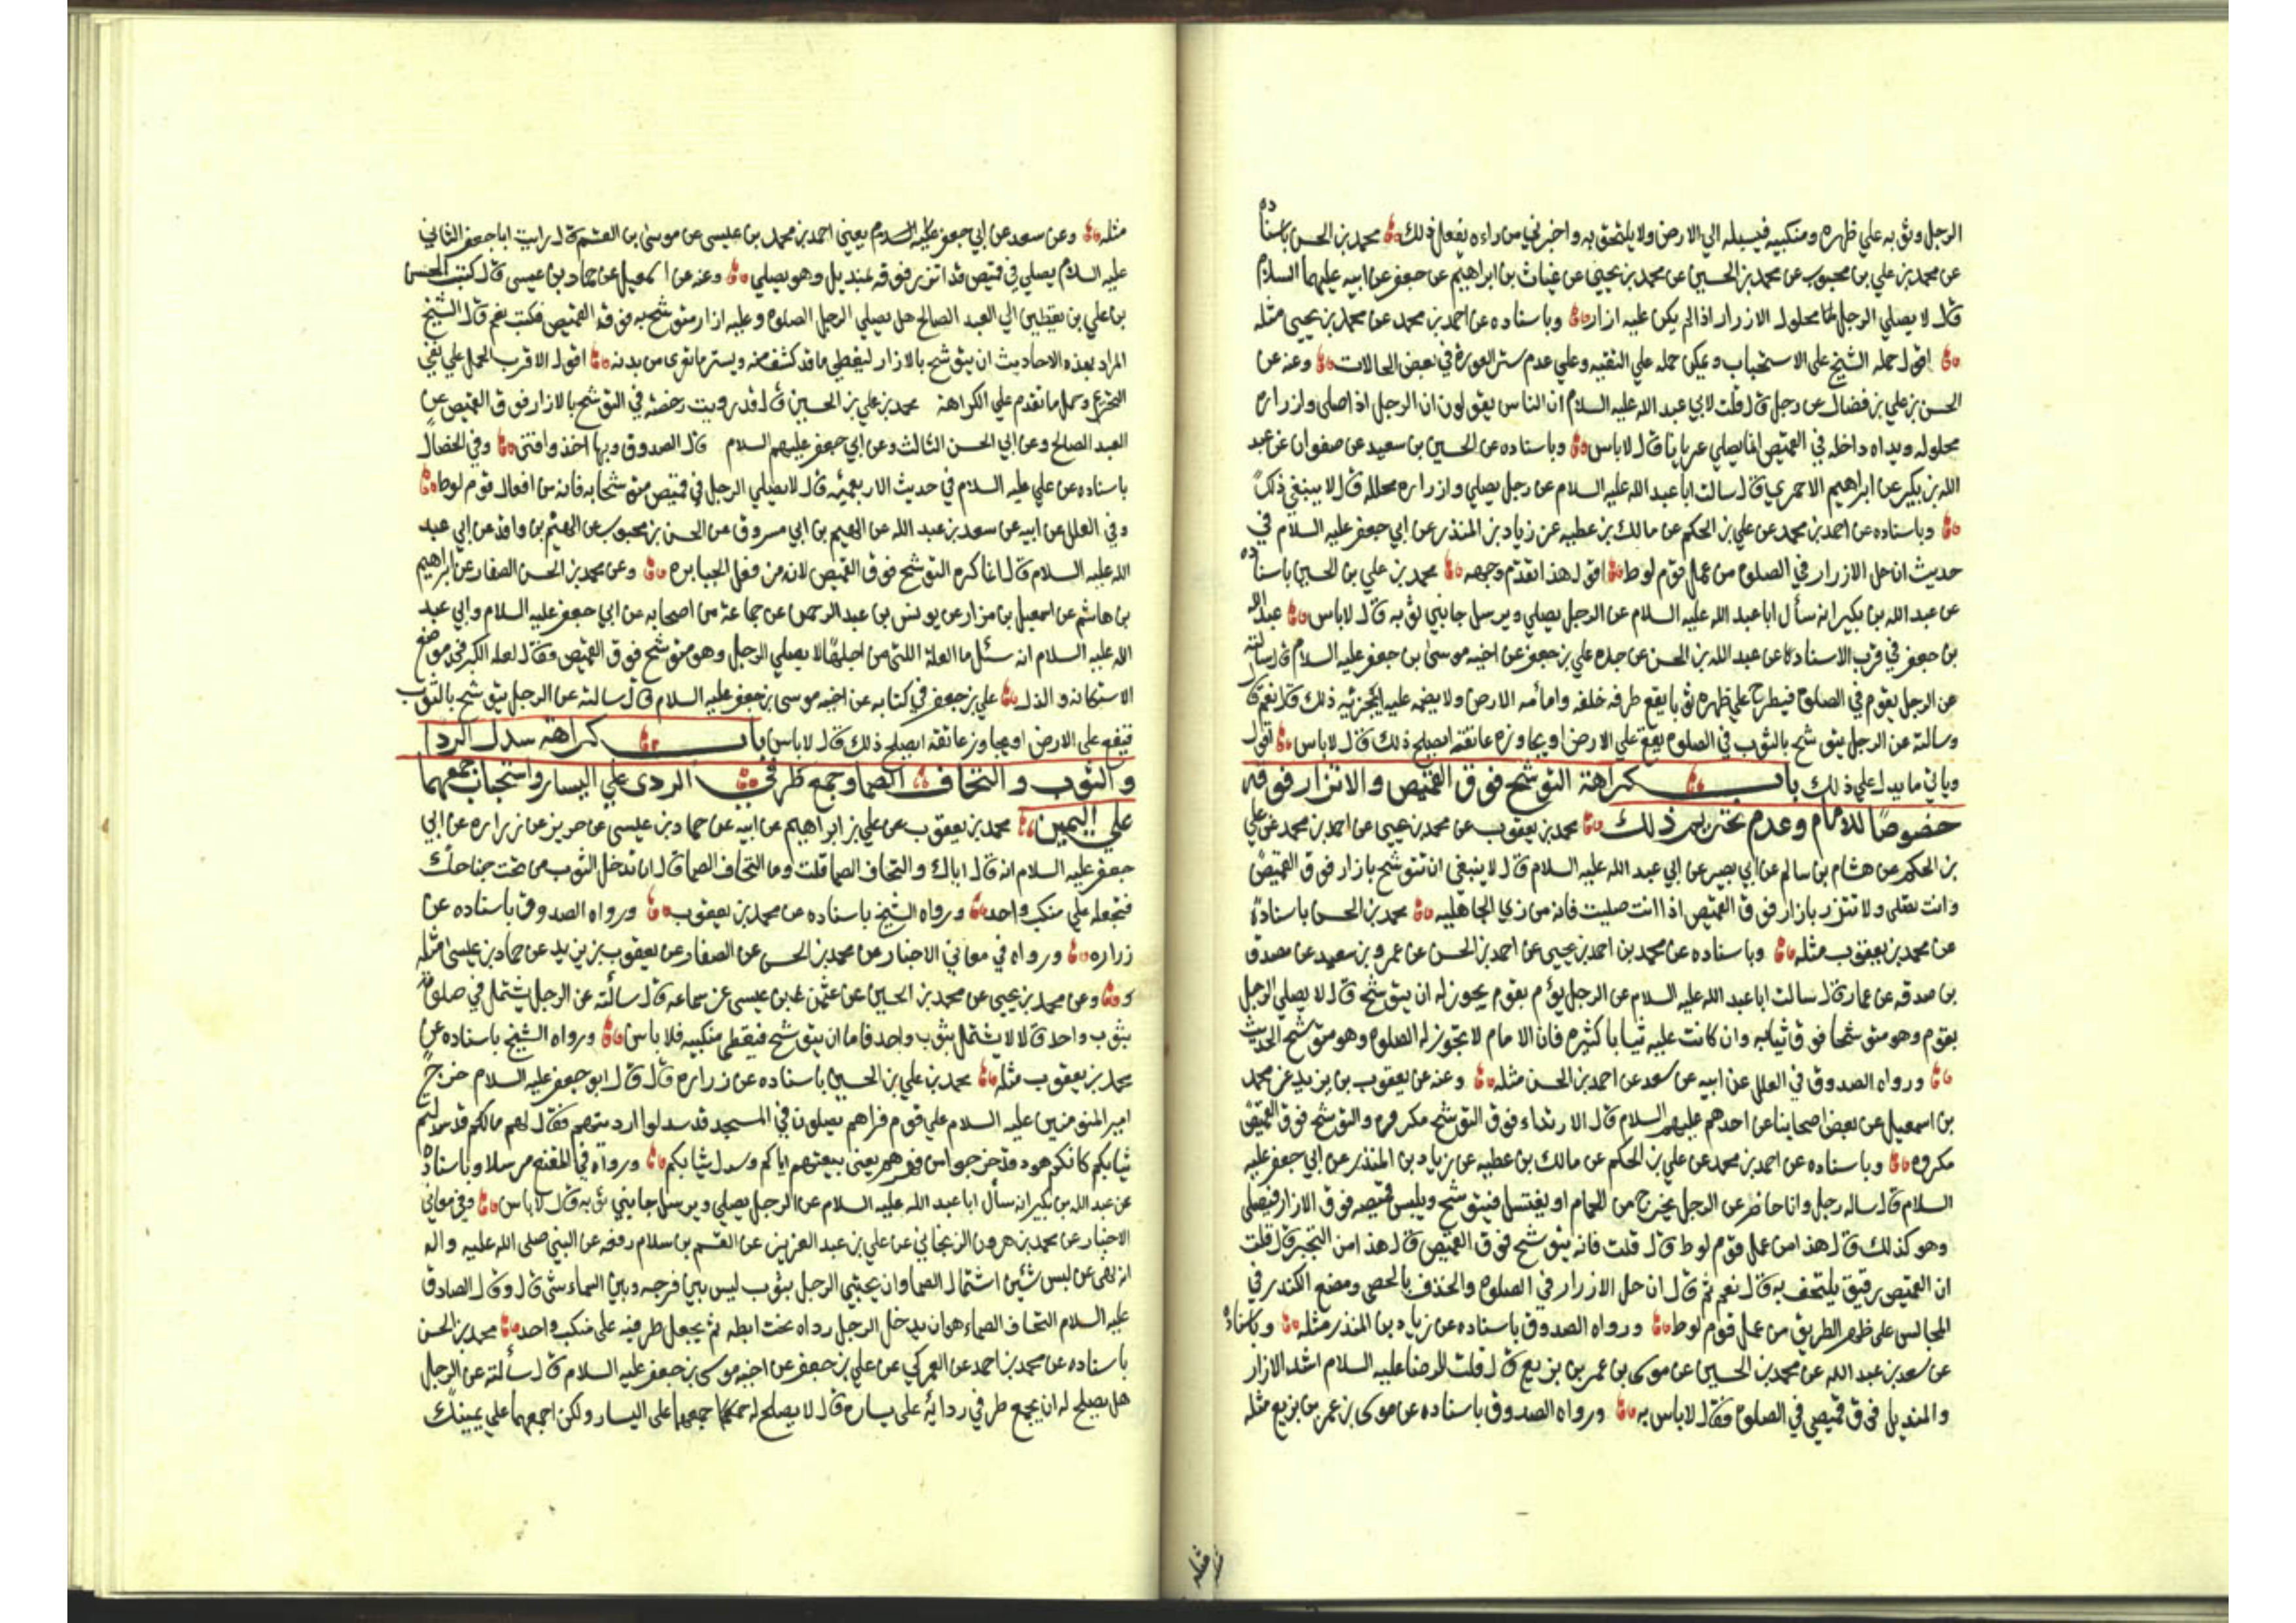 الرجل وثوبه علي ظهره ومنكبيه فيسبله الي الارض ولا يلتحق به واخبرني من راه يفعل ذلك محمد بن الحسن باسناده
عن محمد بن علي بن محبوب عن محمد بن الحسين عن محمد بن يحيي عن غياث بن ابراهيم عن جعفر عن ابيه عليهما السلام
قال لا يصلي الرجل محلول الازرار اذا لم يكن عليه ازار وباسناده عن احمد بن محمد عن محمد بن يحيي مثله
اقول حمله الشيخ علي الاستحباب ويمكن حمله علي التقيه وعلي عدم ستر العورة في بعض الحالات وعنه عن
الحسن بن علي بن فضال عن رجل قال قلت لابي عبد الله عليه السلام ان الناس يقولون ان الرجل اذا صلي وازراره
محلوله ويداه داخله في القميص انما يصلي عريانا قال لا باس وباسناده عن الحسين بن سعيد عن صفوان عن عبد
الله بن بكير عن ابراهيم الاحمري قال سالت ابا عبد الله عليه السلام عن رجل يصلي وازراره محلله قال لا ينبغي ذلك
وباسناده عن احمد بن محمد عن علي بن الحكم عن مالك بن عطيه عن زياد بن المنذر عن ابي جعفر عليه السلام في
حديث ان حل الازرار في الصلوة من عمل قوم لوط اقول هذا تقدم وجهه محمد بن علي بن الحسين باسناده
عن عبد الله بن بكير انه سأل ابا عبد الله عليه السلام عن الرجل يصلي ويرسل جانبي ثوبه قال لا باس عبد الله
بن جعفر في قرب الاسناد عن عبد الله بن الحسن عن جده علي بن جعفر عن اخيه موسى بن جعفر عليه السلام قال سالته
عن الرجل يقوم في الصلوة فيطرح علي ظهره ثوبا يقع طرفه خلفه وامامه الارض ولا يضمه عليه ايجزئيه ذلك قال نعم قال
وسالته عن الرجل يتوشح بالثوب في الصلوة يقع علي الارض او يجاوزه عاتقه ايصلح ذلك قال لا باس اقول
وياتي ما يدل علي ذلك باب كراهة التوشح فوق القميص والاتزار فوقه
خصوصًا للامام وعدم تحريم ذلك محمد بن يعقوب عن محمد بن يحيي عن احمد بن محمد عن علي
بن الحكم عن هشام بن سالم عن ابي بصير عن ابي عبد الله عليه السلام قال لا ينبغي ان تتوشح بازار فوق القميص
وانت تصلي ولا تتزر بازار فوق القميص اذا انت صليت فانه من زي الجاهليه محمد بن الحسن باسناده
عن محمد بن يعقوب مثله وباسناده عن محمد بن احمد بن يحيي عن احمد بن الحسن عن عمرو بن سعيد عن مصدق
بن صدقه عن عمار قال سالت ابا عبد الله عليه السلام عن الرجل يؤم بقوم يجوز له ان يتوشح قال لا يصلي الرجل
بقوم وهو متوشحا فوق ثيابه وان كانت عليه ثيابا كثيره فان الامام لا يجوز له الصلوة وهو متوشح الحديث
ورواه الصدوق في العلل عن ابيه عن سعد عن احمد بن الحسن مثله وعنه عن يعقوب بن يزيد عن محمد
بن اسمعيل عن بعض اصحابنا عن احدهم عليهم السلام قال الارتداء فوق التوشح مكروه والتوشح فوق القميص
مكروه وباسناده عن احمد بن محمد عن علي بن الحكم عن مالك بن عطيه عن زياد بن المنذر عن ابي جعفر عليه
السلام قال ساله رجل وانا حاضر عن الرجل يخرج من الحمام او يغتسل فيتوشح ويلبس قميصه فوق الازار فيصلي
وهو كذلك قال هذا من عمل قوم لوط قال قلت فانه يتوشح فوق القميص قال هذا من التجبر قال قلت
ان القميص رقيق يلتحف به قال نعم ثم قال ان حل الازرار في الصلوة والخذف بالحصي ومضغ الكندر في
المجالس علي ظهر الطريق من عمل قوم لوط ورواه الصدوق باسناده عن زياد بن المنذر مثله وباسناده
عن سعد بن عبد الله عن محمد بن الحسين عن موسى بن عمر بن بزيع قال قلت للرضا عليه السلام اشد الازار
والمنديل فوق قميصي في الصلوة فقال لا باس به ورواه الصدوق باسناده عن موسى بن عمر بن بزيع مثله
مثله
مثله وعن سعد عن ابي جعفر عليه السلام يعني احمد بن محمد بن عيسي عن موسى بن القسم قال رايت ابا جعفر الثاني
عليه السلام يصلي في قميص قد اتزر فوقه بمنديل وهو يصلي وعنه عن اسمعيل عن حماد بن عيسي قال كتب الحسن
بن علي بن يقطين الي العبد الصالح هل يصلي الرجل الصلوة وعليه ازار متوشح به فوق القميص فكتب نعم قال الشيخ
المراد بهذه الاحاديث ان يتوشح بالازار ليغطي ما قد كشف منه ويستر ما تعري من بدنه اقول الاقرب الحمل علي نفي
التحريم وحمل ما تقدم علي الكراهة محمد بن علي بن الحسين قال قد رويت رخصه في التوشح بالازار فوق القميص عن
العبد الصالح وعن ابي الحسن الثالث وعن ابي جعفر عليهم السلام قال الصدوق وبها اخذ وافتي وفي الخصال
باسناده عن علي عليه السلام في حديث الاربعمئه قال لا يصلي الرجل في قميص متوشحا به فانه من افعال قوم لوط
وفي العلل عن ابيه عن سعد بن عبد الله عن الهيثم بن ابي مسروق عن الحسن بن محبوب عن الهيثم بن واقد عن ابي عبد
الله عليه السلام قال انما كره التوشح فوق القميص لانه من فعل الجبابره وعن محمد بن الحسن الصفار عن ابراهيم
بن هاشم عن اسمعيل بن مزار عن يونس بن عبد الرحمن عن جماعة من اصحابه عن ابي جعفر عليه السلام وابي عبد
الله عليه السلام انه سئل ما العلة اللتي من اجلها لا يصلي الرجل وهو متوشح فوق القميص فقال لعله الكبر في موضع
الاستكانه والذل علي بن جعفر في كتابه عن اخيه موسى بن جعفر عليه السلام قال سالته عن الرجل يتوشح بالثوب
فيقع علي الارض او يجاوز عاتقه ايصلح ذلك قال لا باس باب كراهة سدل الردا
والثوب والتحاف الصما وجمع طرفي الردى علي اليسار واستحباب جمعهما
علي اليمين محمد بن يعقوب عن علي بن ابراهيم عن ابيه عن حماد بن عيسي عن حريز عن زراره عن ابي
جعفر عليه السلام انه قال اياك والتحاف الصما قلت وما التحاف الصما قال ان تدخل الثوب من تحت جناحك
فتجعله علي منكب واحد ورواه الشيخ باسناده عن محمد بن يعقوب ورواه الصدوق باسناده عن
زراره ورواه في معاني الاخبار عن محمد بن الحسن عن الصفار عن يعقوب بن يزيد عن حماد بن عيسى مثله
وعن محمد بن يحيي عن محمد بن الحسين عن عثمن بن عيسى عن سماعه قال سألته عن الرجل يشتمل في صلوته
بثوب واحد قال لا يشتمل بثوب واحد فاما ان يتوشح فيغطي منكبيه فلا باس ورواه الشيخ باسناده عن
محمد بن يعقوب مثله محمد بن علي بن الحسين باسناده عن زراره قال قال ابو جعفر عليه السلام خرج
امير المؤمنين عليه السلام علي قوم فراهم يصلون في المسجد قد سدلوا ارديتهم فقال لهم مالكم قد سدلتم
ثيابكم كانكم يهود قد خرجوا من فهرهم يعني بيعتهم اياكم وسدل ثيابكم ورواه في المقنع مرسلا وباسناده
عن عبد الله بن بكير انه سأل ابا عبد الله عليه السلام عن الرجل يصلي ويرسل جانبي ثوبه قال لا باس وفي معاني
الاخبار عن محمد بن هرون الزنجاني عن علي بن عبد العزيز عن القسم بن سلام رفعه عن النبي صلى الله عليه واله
انه نهى عن لبستين اشتمال الصما وان يحتبي الرجل بثوب ليس بين فرجه وبين السماء شئ قال وقال الصادق
عليه السلام التحاف الصماء هو ان يدخل الرجل رداه تحت ابطه ثم يجعل طرفيه على منكب واحد محمد بن الحسن
باسناده عن محمد بن احمد عن العمركي عن علي بن جعفر عن اخيه موسى بن جعفر عليه السلام قال سألته عن الرجل
هل يصلح له ان يجمع طرفي ردائه على يساره قال لا يصلح جمعهما على اليسار ولكن اجمعهما علي يمينك